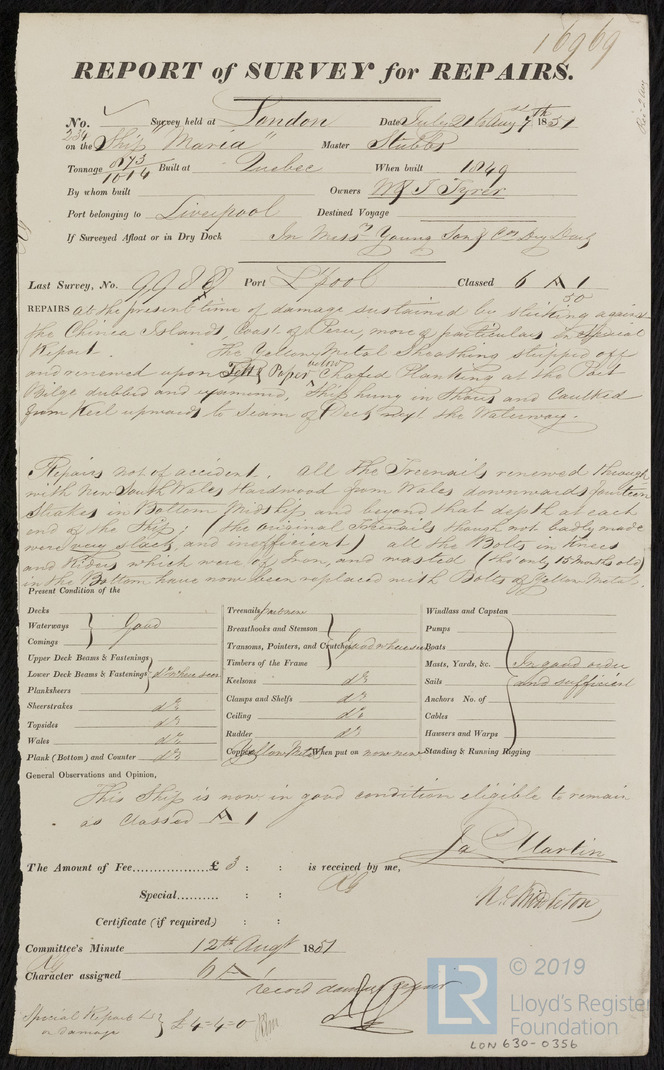 16969
REPORT of SURVEY for REPAIRS.
No. Survey held at London Date July 21st & Augst 7th 1851
234 on the Ship "Maria" Master Stubbs
Tonnage 873/1014 Built at Quebec When built 1849
By whom built Owners W & J Tyrer
Port belonging to Liverpool Destined Voyage
If Surveyed Afloat or in Dry Dock In Messrs Young Son & Cos Dry Dock
Last Survey, No. 9988 Port L'pool Classed 6 A 1
50
REPAIRS at the present time of damage sustained by striking against
the Chinca Islands, Coast of Peru, more particulars in Special
Report. The Yellow Metal Sheathing stripped off
and renewed upon Felt & Paper before Chafed Planking at the Port
Bilge dubbed and examined, Ship hung in Shores and Caulked
from Keel upwards to seam of Deck next the Waterway.
Repairs not of accident. All the Treenails renewed through
with New South Wales Hardwood from Wales downwards fourteen
Strakes in Bottom Midship and beyond that depth at each
end of the Ship; (the original Treenails though not badly made
were very slack, and inefficient) all the Bolts in Knees
and Riders which were of Iron, and wasted (tho' only 15 months old)
in the Bottom have now been replaced with Bolts of Yellow Metal.
Present Condition of the
Decks
Waterways } Good
Comings
Upper Deck Beams & Fastenings
Lower Deck Beams & Fastenings } do where seen
Planksheers
Sheerstrakes do
Topsides do
Wales do
Plank (Bottom) and Counter do
Treenails part new
Breasthooks and Stemson
Transoms, Pointers, and Crutches } Good where seen
Timbers of the Frame
Keelsons do
Clamps and Shelfs do
Ceiling do
Rudder do
Copper Yellow Metal When put on now new
Windlass and Capstan
Pumps
Boats
Masts, Yards, &c. In good order
Sails and sufficient
Anchors No. of
Cables
Hawsers and Warps
Standing & Running Rigging
General Observations and Opinion,
This Ship is now in good condition eligible to remain
as classed A 1
Jas Martin
The Amount of Fee £ 3 : : is received by me,
Special : :
Wm Middleton
Certificate (if required) : :
Committee's Minute 12th Augt 1851
Character assigned 6 A 1
record damage repair
Special Report
on damage } £4=4=0
LR
© 2019
Lloyd's Register
Foundation
LON 630-0356